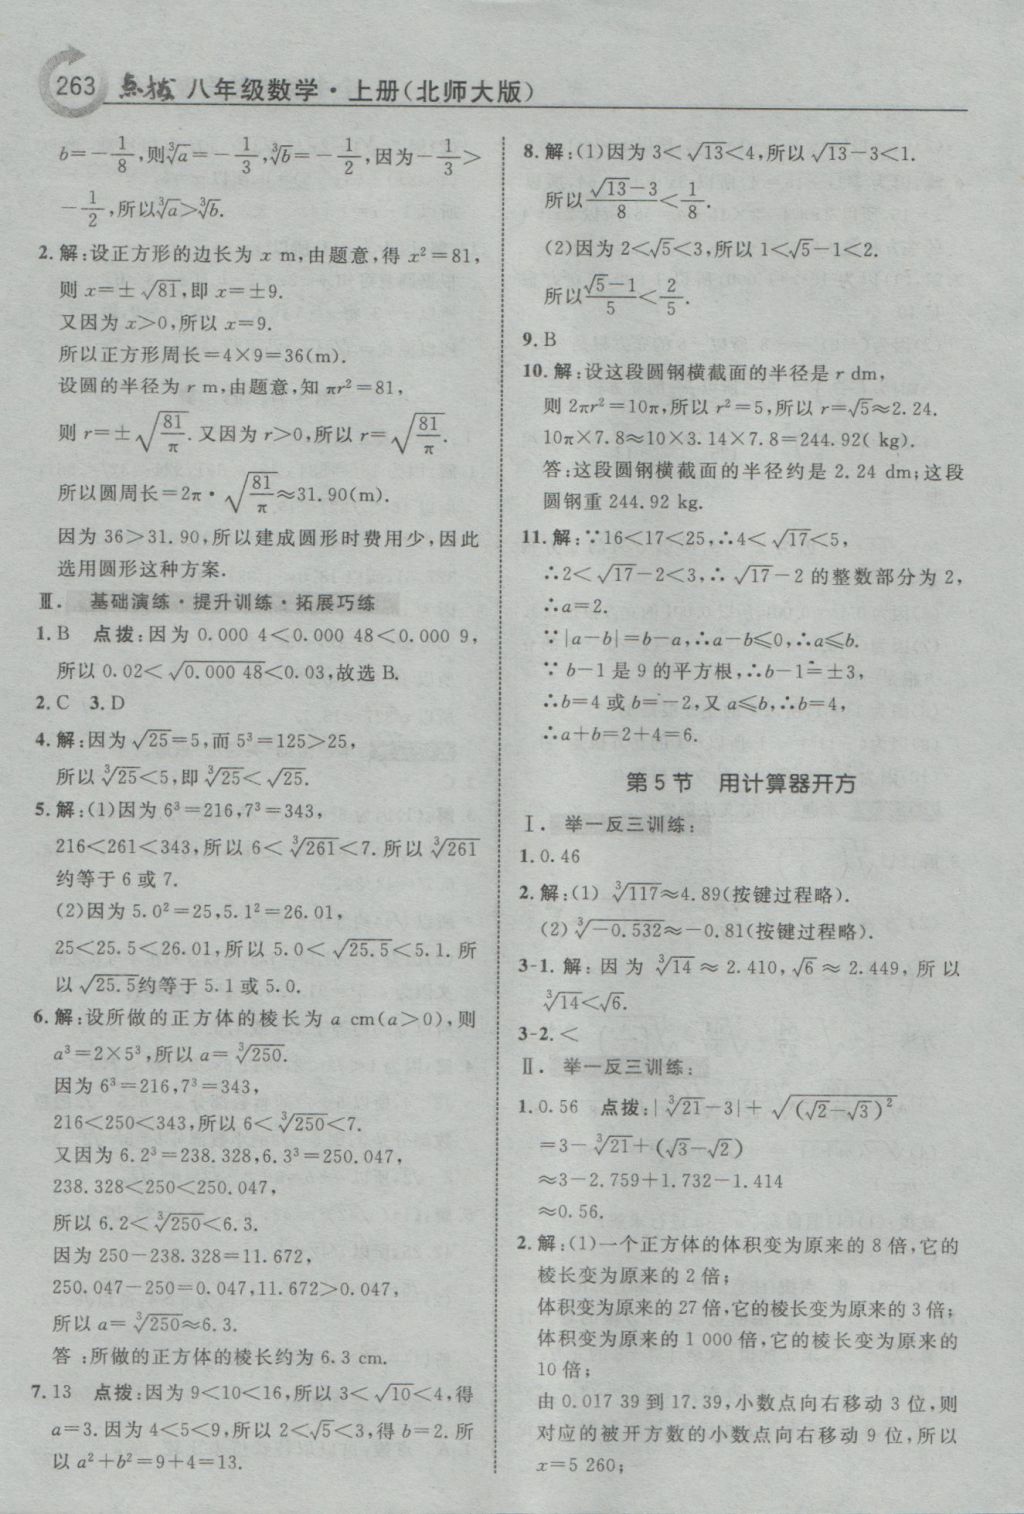 263 点拨 八年级数学·上册(北师大版)
b=-1/8,则∛a=-1/3,∛b=-1/2,因为-1/3>
-1/2,所以∛a>∛b.
2.解:设正方形的边长为 x m,由题意,得 x²=81,
则 x=±√81,即 x=±9.
又因为 x>0,所以 x=9.
所以正方形周长=4×9=36(m).
设圆的半径为 r m,由题意,知 πr²=81,
则 r=±√(81/π).又因为 r>0,所以 r=√(81/π).
所以圆周长=2π·√(81/π)≈31.90(m).
因为 36>31.90,所以建成圆形时费用少,因此
选用圆形这种方案.
Ⅲ. 基础演练·提升训练·拓展巧练
1.B 点拨:因为 0.000 4<0.000 48<0.000 9,
所以 0.02<√0.000 48<0.03,故选 B.
2.C 3.D
4.解:因为√25=5,而 5³=125>25,
所以∛25<5,即∛25<√25.
5.解:(1)因为 6³=216,7³=343,
216<261<343,所以 6<∛261<7.所以∛261
约等于 6 或 7.
(2)因为 5.0²=25,5.1²=26.01,
25<25.5<26.01,所以 5.0<√25.5<5.1.所
以√25.5约等于 5.1 或 5.0.
6.解:设所做的正方体的棱长为 a cm(a>0),则
a³=2×5³,所以 a=∛250.
因为 6³=216,7³=343,
216<250<343,所以 6<∛250<7.
又因为 6.2³=238.328,6.3³=250.047,
238.328<250<250.047,
所以 6.2<∛250<6.3.
因为 250-238.328=11.672,
250.047-250=0.047,11.672>0.047,
所以 a=∛250≈6.3.
答:所做的正方体的棱长约为 6.3 cm.
7.13 点拨:因为 9<10<16,所以 3<√10<4,得
a=3.因为 4<5<9,所以 2<√5<3,得 b=2.所
以 a²+b²=9+4=13.
8.解:(1)因为 3<√13<4,所以√13-3<1.
所以(√13-3)/8<1/8.
(2)因为 2<√5<3,所以 1<√5-1<2.
所以(√5-1)/5<2/5.
9.B
10.解:设这段圆钢横截面的半径是 r dm,
则 2πr²=10π,所以 r²=5,所以 r=√5≈2.24.
10π×7.8≈10×3.14×7.8=244.92( kg).
答:这段圆钢横截面的半径约是 2.24 dm;这段
圆钢重 244.92 kg.
11.解:∵16<17<25,∴4<√17<5,
∴2<√17-2<3,∴√17-2 的整数部分为 2,
∴a=2.
∵|a-b|=b-a,∴a-b⩽0,∴a⩽b.
∵b-1 是 9 的平方根,∴b-1=±3,
∴b=4 或 b=-2,又 a⩽b,∴b=4,
∴a+b=2+4=6.
第 5 节 用计算器开方
Ⅰ. 举一反三训练:
1.0.46
2.解:(1)∛117≈4.89(按键过程略).
(2)∛-0.532≈-0.81(按键过程略).
3-1.解:因为∛14≈2.410,√6≈2.449,所以
∛14<√6.
3-2.<
Ⅱ. 举一反三训练:
1.0.56 点拨:|∛21-3|+√(√2-√3)²
=3-∛21+(√3-√2)
≈3-2.759+1.732-1.414
≈0.56.
2.解:(1)一个正方体的体积变为原来的 8 倍,它的
棱长变为原来的 2 倍;
体积变为原来的 27 倍,它的棱长变为原来的 3 倍;
体积变为原来的 1 000 倍,它的棱长变为原来的
10 倍;
由 0.017 39 到 17.39,小数点向右移动 3 位,则
对应的被开方数的小数点向右移动 9 位,所以
x=5 260;